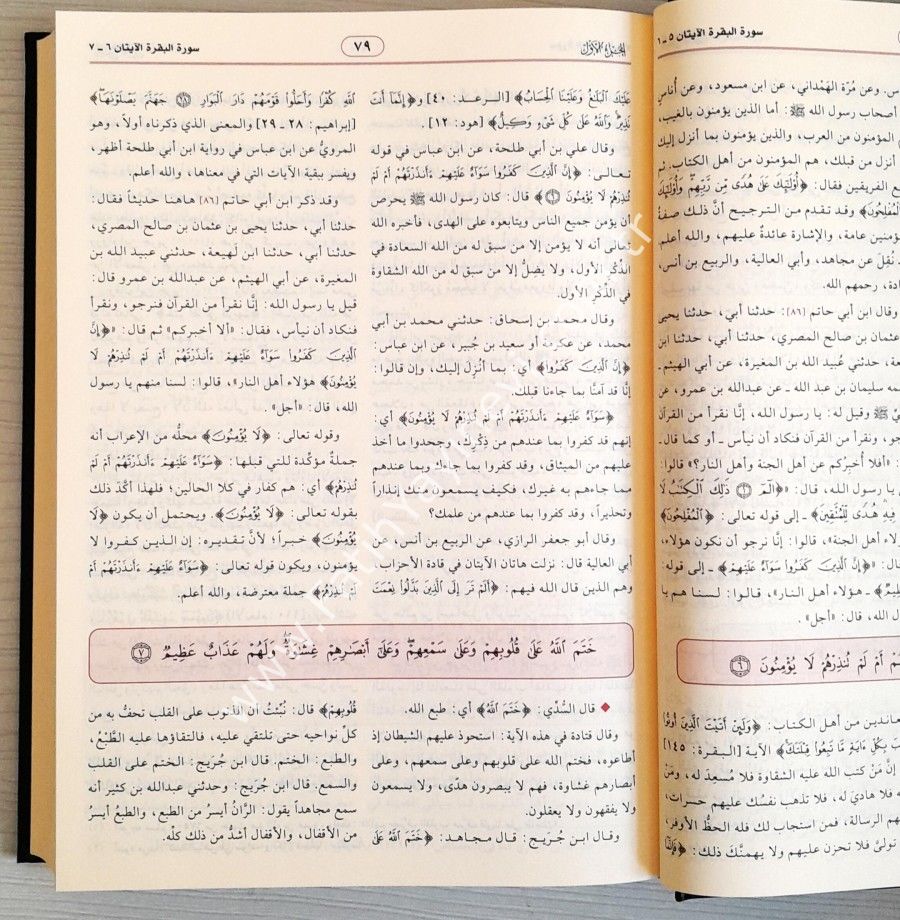 سورة البقرة الآيتان ٥ ـ ١
س. وعن مُرّة الهَمْداني، عن ابن مسعود، وعن أُناسٍ
أصحاب رسول الله ﷺ: أما الذين يؤمنون بالغيب،
المؤمنون من العرب، والذين يؤمنون بما أنزل إليك
أنزل من قبلك، هم المؤمنون من أهل الكتاب. ثم
ع الفريقين فقال: ﴿أُوْلَٰٓئِكَ عَلَىٰ هُدًى مِّن رَّبِّهِمْۖ وَأُوْلَٰٓئِكَ
الْمُفْلِحُونَ﴾ وقد تقدم من الترجيح أنَّ ذلك صفةُ
ؤمنين عامة، والإشارة عائدةٌ عليهم، والله أعلم.
ـ نُقِلَ عن مجاهد، وأبي العالية، والربيع بن أنس،
ادة، رحمهم الله.
وقال ابن أبي حاتم [٨٦]: حدثنا أبيَ، حدثنا يحيى
عثمان بن صالح المصري، حدثنا أبي، حدثنا ابن
عة، حدثني عُبيد الله بن المغيرة، عن أبي الهيثم ـ
مه سليمان بن عبد الله ـ عن عبدالله بن عمرو، عن
يِّ ﷺ وقيل له: يا رسول الله، إنَّا نقرأ من القرآن
جو، ونقرأ من القرآن فنكاد أن نيأس ـ أو كما قال ـ
: «أفلا أُخبِركُم عن أهل الجنة وأهل النار؟» قالوا:
ى يا رسول الله، قال: «﴿الٓمٓ ۝١ ذَٰلِكَ الْكِتَٰبُ لَا
فِيهِ هُدًى لِّلْمُتَّقِينَ﴾ ـ إلى قوله تعالى: ﴿الْمُفْلِحُونَ﴾
أهل الجنة»، قالوا: إنَّا نرجو أن نكون هؤلاء،
قال: «﴿إِنَّ الَّذِينَ كَفَرُوا۟ سَوَآءٌ عَلَيْهِمْ﴾ ـ إلى قوله:
ظِيمٌ﴾ ـ هؤلاء أهل النار»، قالوا: لسنا هم يا
ل الله، قال: «أجل».
هُمْ أَمْ لَمْ تُنذِرْهُمْ لَا يُؤْمِنُونَ ۝٦
عاندين من أهل الكتاب: ﴿وَلَئِنْ أَتَيْتَ الَّذِينَ أُوتُوا۟
بَ بِكُلِّ ءَايَةٍ مَّا تَبِعُوا۟ قِبْلَتَكَ﴾ الآية [البقرة: ١٤٥]
إنَّ مَنْ كتب الله عليه الشقاوة فلا مُسعِدَ له، ومَنْ
ه فلا هاديَ له، فلا تذهب نفسُك عليهم حسرات،
هم الرسالة، فمن استجاب لك فله الحظُّ الأوفر،
تولىّ فلا تحزن عليهم ولا يهمنَّك ذلك: ﴿فَإِنَّمَا
الجزء الأول
٧٩
سورة البقرة الآيتان ٦ ـ ٧
عَلَيْكَ الْبَلَٰغُ وَعَلَيْنَا الْحِسَابُ﴾ [الرعد: ٤٠] و﴿إِنَّمَآ أَنتَ
نَذِيرٌۚ وَاللَّهُ عَلَىٰ كُلِّ شَىْءٍ وَكِيلٌ﴾ [هود: ١٢].
وقال علي بن أبي طلحة، عن ابن عباس في قوله
تعالى: ﴿إِنَّ الَّذِينَ كَفَرُوا۟ سَوَآءٌ عَلَيْهِمْ ءَأَنذَرْتَهُمْ أَمْ لَمْ
تُنذِرْهُمْ لَا يُؤْمِنُونَ ۝٦﴾ قال: كان رسول الله ﷺ يحرص
أن يؤمن جميع الناس ويتابعوه على الهدى، فأخبره الله
تعالى أنه لا يؤمن إلا من سبق له من الله السعادة في
الذِّكْر الأول، ولا يضِلُّ إلا من سبق له من الله الشقاوة
في الذِّكْر الأول.
وقال محمد بن إسحاق: حدثني محمد بن أبي
محمد، عن عكرمة أو سعيد بن جُبير، عن ابن عباس:
﴿إِنَّ الَّذِينَ كَفَرُوا۟﴾ أي: بما أُنزِلَ إليك، وإن قالوا:
إنَّا قد آمنَّا بما جاءنا قبلك.
﴿سَوَآءٌ عَلَيْهِمْ ءَأَنذَرْتَهُمْ أَمْ لَمْ تُنذِرْهُمْ لَا يُؤْمِنُونَ﴾ أي:
إنهم قد كفروا بما عندهم من ذِكرِك، وجحدوا ما أخذ
عليهم من الميثاق، وقد كفروا بما جاءك وبما عندهم
مما جاءهم به غيرك، فكيف يسمعون منك إنذاراً
وتحذيراً، وقد كفروا بما عندهم من علمك؟
وقال أبو جعفر الرازي، عن الربيع بن أنس، عن
أبي العالية قال: نزلت هاتان الآيتان في قادة الأحزاب،
وهم الذين قال الله فيهم: ﴿أَلَمْ تَرَ إِلَى الَّذِينَ بَدَّلُوا۟ نِعْمَتَ
اللَّهِ كُفْرًا وَأَحَلُّوا۟ قَوْمَهُمْ دَارَ الْبَوَارِ ۝٢٨ جَهَنَّمَ يَصْلَوْنَهَا﴾
[إبراهيم: ٢٨ ـ ٢٩] والمعنى الذي ذكرناه أولاً، وهو
المرويُّ عن ابن عباس في رواية ابن أبي طلحة أظهر،
ويفسر ببقية الآيات التي في معناها، والله أعلم.
وقد ذكر ابن أبي حاتم [٨٦] هاهنا حديثاً فقال:
حدثنا أبي، حدثنا يحيى بن عثمان بن صالح المصري،
حدثنا أبي، حدثنا ابن لَهيعة، حدثني عبيد الله بن
المغيرة، عن أبي الهيثم، عن عبدالله بن عمرو قال:
قيل يا رسول الله: إنَّا نقرأ من القرآن فنرجو، ونقرأ
فنكاد أن نيأس، فقال: «ألا أخبركم» ثم قال: «﴿إِنَّ
الَّذِينَ كَفَرُوا۟ سَوَآءٌ عَلَيْهِمْ ءَأَنذَرْتَهُمْ أَمْ لَمْ تُنذِرْهُمْ لَا
يُؤْمِنُونَ﴾ هؤلاء أهل النار»، قالوا: لسنا منهم يا رسول
الله، قال: «أجل».
وقوله تعالى: ﴿لَا يُؤْمِنُونَ﴾ محلُّه من الإعراب أنه
جملةٌ مؤكّدة للتي قبلها: ﴿سَوَآءٌ عَلَيْهِمْ ءَأَنذَرْتَهُمْ أَمْ لَمْ
تُنذِرْهُمْ﴾ أي: هم كفار في كلا الحالين؛ فلهذا أكّد ذلك
بقوله تعالى: ﴿لَا يُؤْمِنُونَ﴾. ويحتمل أن يكون ﴿لَا
يُؤْمِنُونَ﴾ خبراً؛ لأنَّ تقديره: إن الذين كفروا لا
يؤمنون، ويكون قوله تعالى: ﴿سَوَآءٌ عَلَيْهِمْ ءَأَنذَرْتَهُمْ أَمْ
لَمْ تُنذِرْهُمْ﴾ جملة معترضة، والله أعلم.
خَتَمَ اللَّهُ عَلَىٰ قُلُوبِهِمْ وَعَلَىٰ سَمْعِهِمْۖ وَعَلَىٰٓ أَبْصَٰرِهِمْ غِشَٰوَةٌۖ وَلَهُمْ عَذَابٌ عَظِيمٌ ۝٧
◆ قال السُّدّي: ﴿خَتَمَ اللَّهُ﴾ أي: طبع الله.
وقال قتادة في هذه الآية: استحوذ عليهم الشيطان إذ
أطاعوه، فختم الله على قلوبهم وعلى سمعهم، وعلى
أبصارهم غشاوة، فهم لا يبصرون هدًى، ولا يسمعون
ولا يفقهون ولا يعقلون.
وقال ابن جُريج: قال مجاهد: ﴿خَتَمَ اللَّهُ عَلَىٰ
قُلُوبِهِمْ﴾ قال: نُبِّئتُ أن الذنوب على القلب تحفُّ به من
كلِّ نواحيه حتى تلتقي عليه، فالتقاؤها عليه الطَّبْعُ،
والطبع: الختم. قال ابن جُرَيج: الختم على القلب
والسمع. قال ابن جُريج: وحدثني عبدالله بن كثير أنه
سمع مجاهداً يقول: الرَّانُ أيسرُ من الطبع، والطبعُ أيسرُ
من الأقفال، والأقفال أشدُّ من ذلك كلِّه.